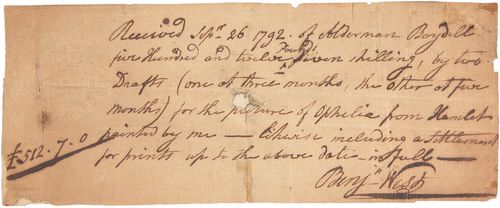 Received Sepr. 26 1792. of Alderman Boydell
five Hundred and twelve Pounds Seven shilling, by two
Drafts. (one at three months, the other at five
months) for the picture of Ophelia from Hamlet
painted by me — likewise including a settlement
£512.7.0 for prints up to the above date — in full —
Benjn. West